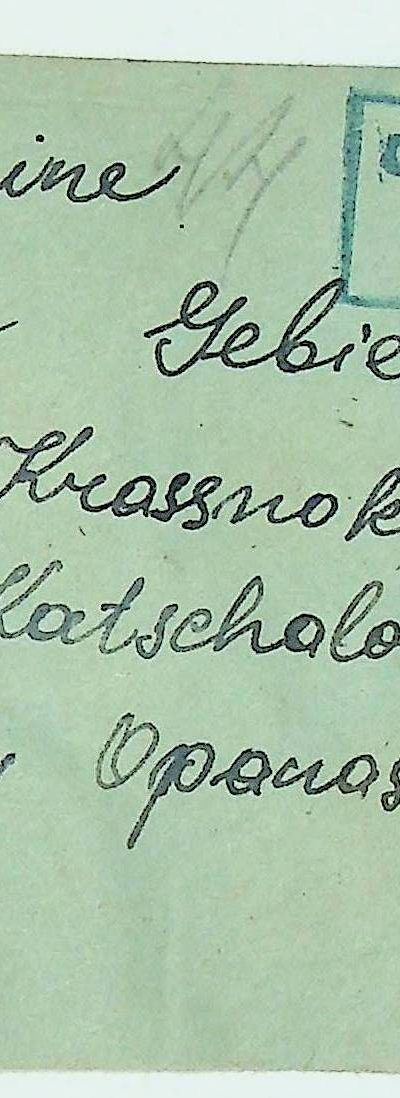 ine
Gebie
Krassnok
Katschalo
Opanas